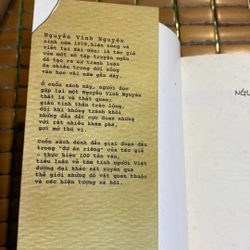 Nguyễn Vĩnh Nguyên
sinh năm 1979, hiện sống và
viết tại Sài Gòn; là tác giả
của một số tập truyện ngắn
đã tạo ra sự tranh luận
đa chiều trong đời sống
văn học vài năm gần đây.
Ở cuốn sách này, người đọc
gặp lại một Nguyễn Vĩnh Nguyên
thật lạ và thật quen:
giàu tính thẩm thấu trào lộng,
đôi khi không tránh khỏi
những dằn đặt cực đoan nhưng
với rất nhiều khám phá,
gợi mở thú vị.
Cuốn sách đánh dấu giai đoạn đầu
trong "dự án riêng" của tác giả
- thực hiện 100 tản văn,
tiểu luận về tâm tính người Việt
đương đại khảo sát xuyên qua
thế giới những đồ vật quen thuộc
và các hiện tượng xã hội.
NGU